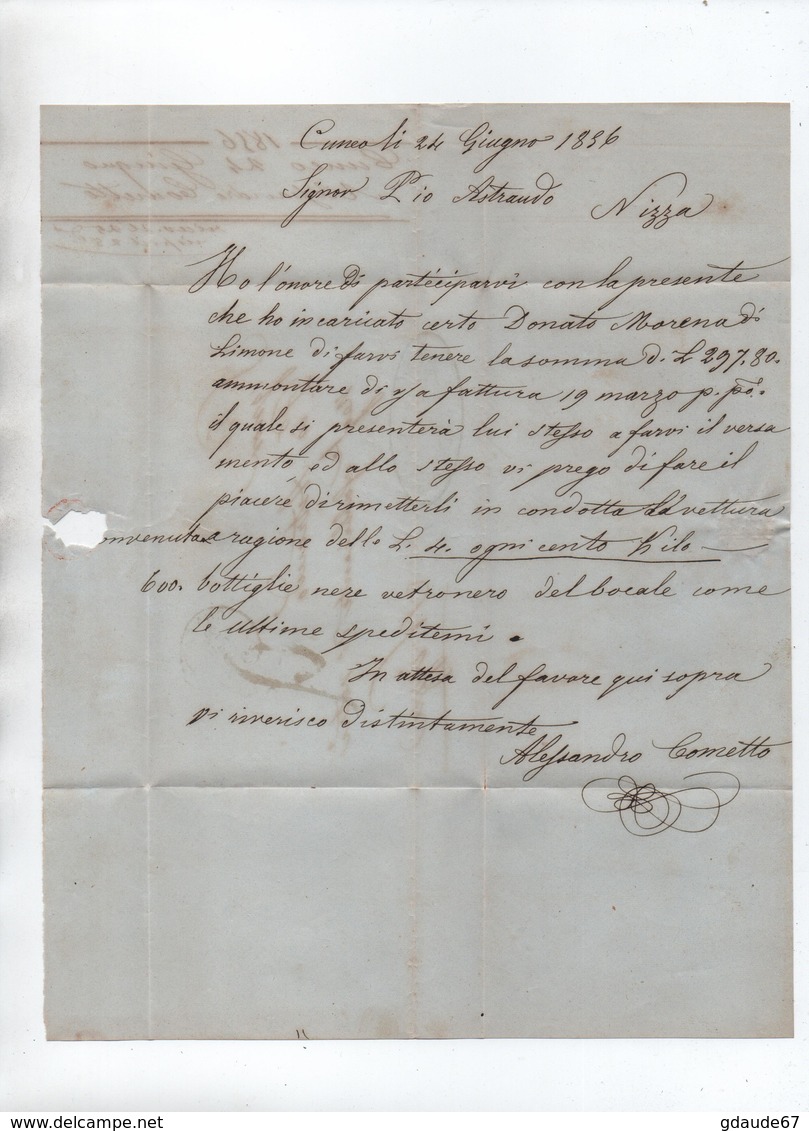 Cuneo li 24 Giugno 1856
Signor Pio Astraudo Nizza
Ho l'onore di partéciparvi con la presente
che ho incaricato certo Donato Morena di
Limone di farvi tenere la somma di L 297.80.
ammontare di v/a fattura 19 marzo p. po.
il quale si presenterà lui stesso a farvi il versa
mento, ed allo stesso vi prego di fare il
piacere di rimetterli in condotta da vettura
convenuta a ragione delle L. 4. ogni cento Kilo
600. bottiglie nere vetronero del bocale come
le ultime speditemi.
In attesa del favore qui sopra
vi riverisco distintamente
Alessandro Cometto
1856
Cuneo 24 Giugno
Cometto
gdaude67